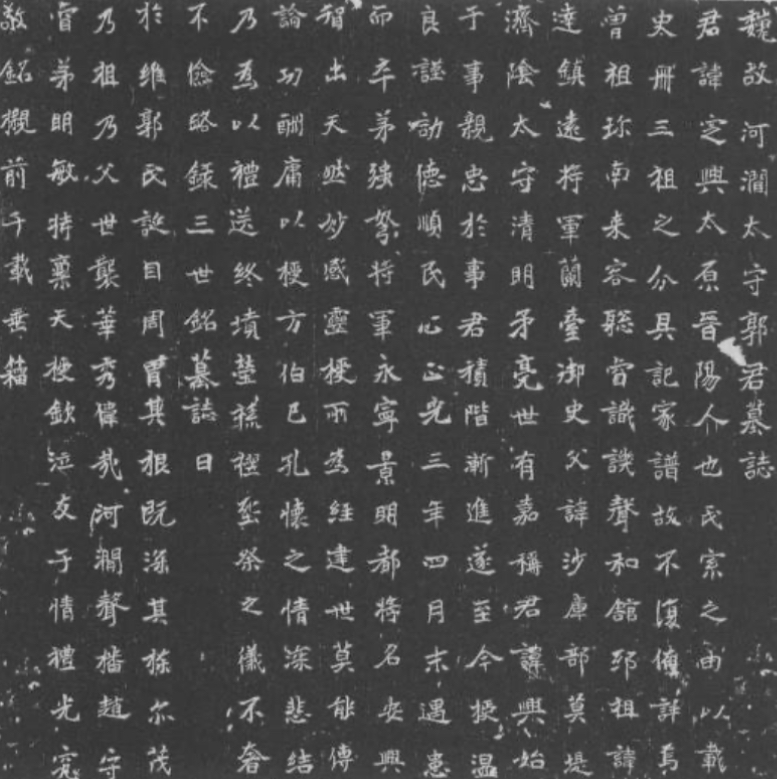 魏故河澗太守郭君墓誌
君諱定興太原晉陽人也氏宗之由以載
史冊三祖之分具記家譜故不復備詳焉
曾祖珎南来客聡睿識談聲和舘邳祖諱
達鎮遠將軍蘭臺御史父諱沙庫部莫堤
濟陰太守清明柔亮世有嘉稱君諱興始
于事親忠於事君積階漸進遂至今授温
良謹効德順民心正光三年四月末遇患
而卒弟强弩將軍永寧景明都將名安興
智出天然妙感靈授所為經建世莫能傳
論功酬庸以授方伯已孔懷之情深悲結
乃為以禮送終墳塋祭之儀不奢
不儉略錄三世銘墓誌曰
於維郭氏誕自周胄其根既深其條尒茂
乃祖乃父世襲華秀偉哉河澗聲播趙守
睿弟明敏特禀天授欽泣友于情禮光
敬銘櫬前千載垂籍